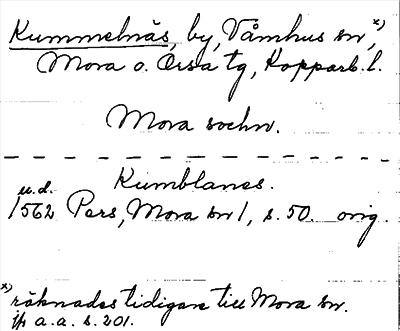 Kummelnäs, by, Våmhus sn, x)
Mora o. Orsa tg, Kopparb. l.
Mora sochn.
Kumblanes.
u.d.
1562 Pers, Mora sn 1, s. 50. orig.
x) räknades tidigare till Mora sn.
jfr a.a. s. 201.